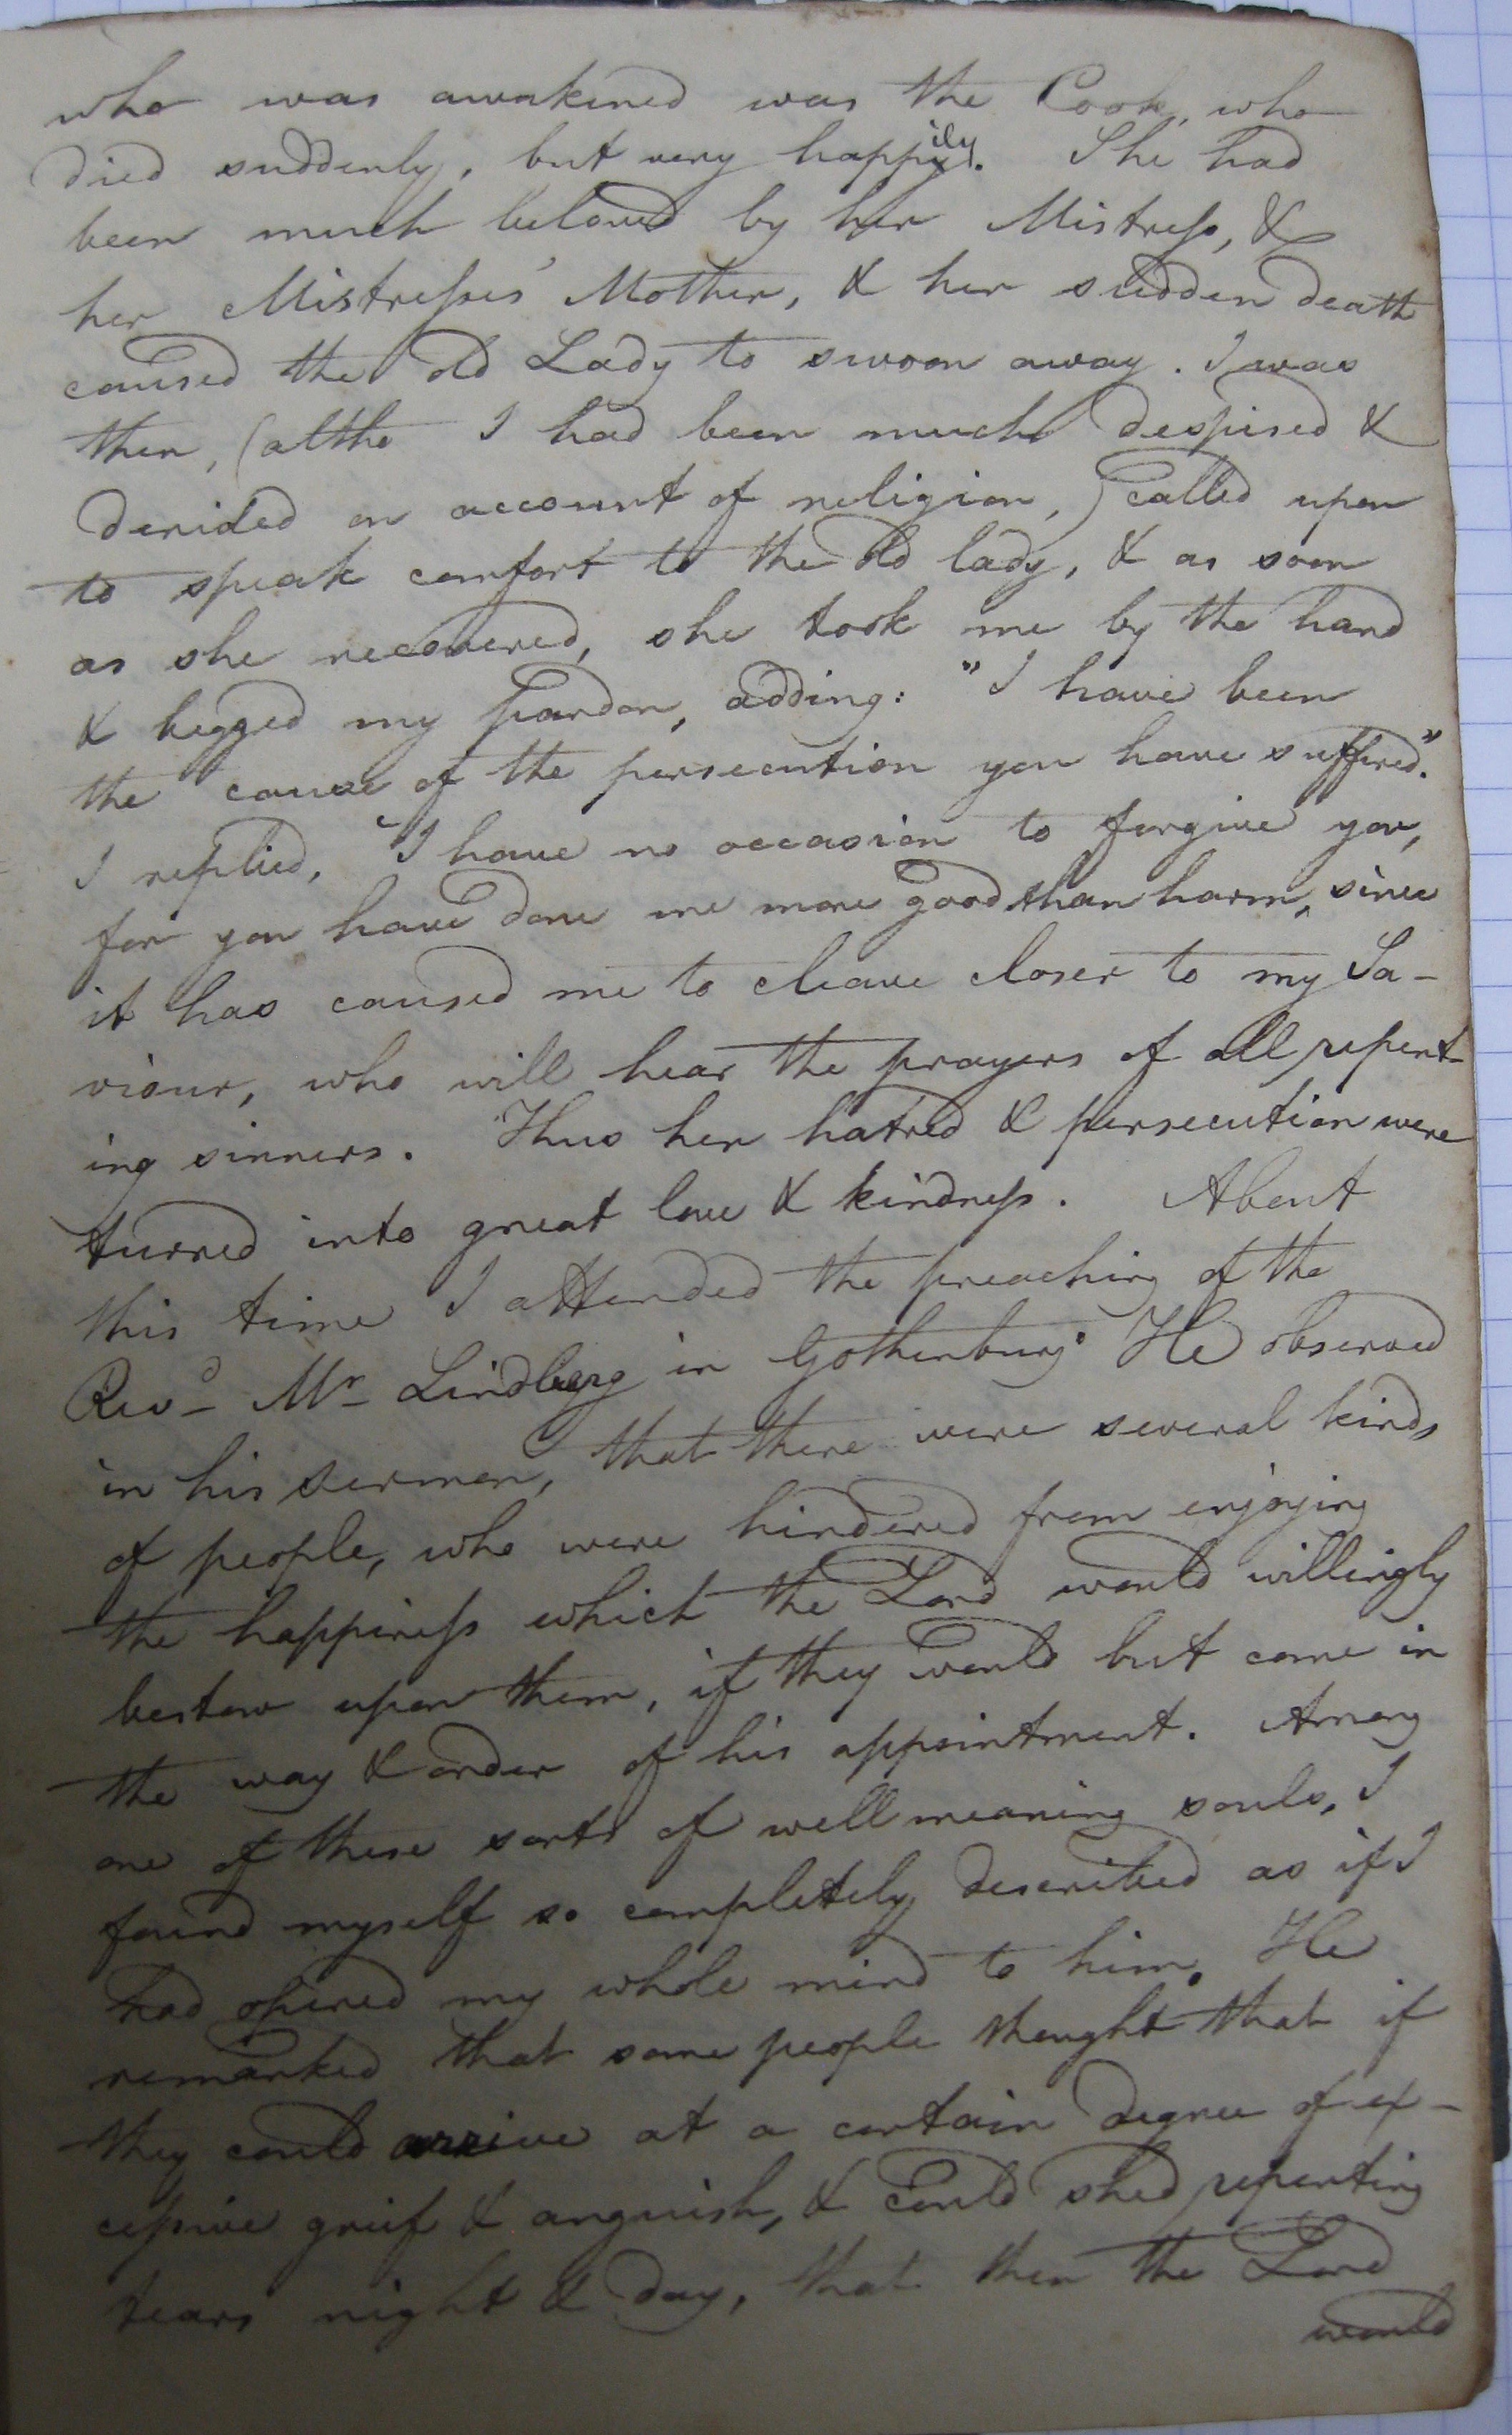 who was awakened was the Cook, who
died suddenly, but very happily. She had
been much beloved by her Mistreſs, &
her Mistreſses' Mother, & her sudden death
caused the old Lady to swoon away. I was
then, (altho I had been much despised &
derided on account of religion,) called upon
to speak comfort to the old lady, & as soon
as she recovered, she took me by the hand
& begged my pardon, adding: "I have been
the cause of the persecution you have suffered."
I replied, "I have no occasion to forgive you,
for you have done me more good than harm, since
it has caused me to cleave closer to my Sa-
viour, who will hear the prayers of all repent-
ing sinners. Thus her hatred & persecution were
turned into great love & kindneſs. About
this time I attended the preaching of the
Revd Mr Lindberg in Gothenburg. He observed
in his sermon, that there were several kinds
of people, who were hindered from enjoying
the happineſs which the Lord would willingly
bestow upon them, if they would but come in
the way & order of his appointment. Among
one of these sorts of wellmeaning souls, I
found myself so completely described as if I
had opened my whole mind to him. He
remarked that some people thought that if
they could arrive at a certain degree of ex-
ceſsive grief & anguish, & could shed repenting
tears night & day, that then the Lord
would